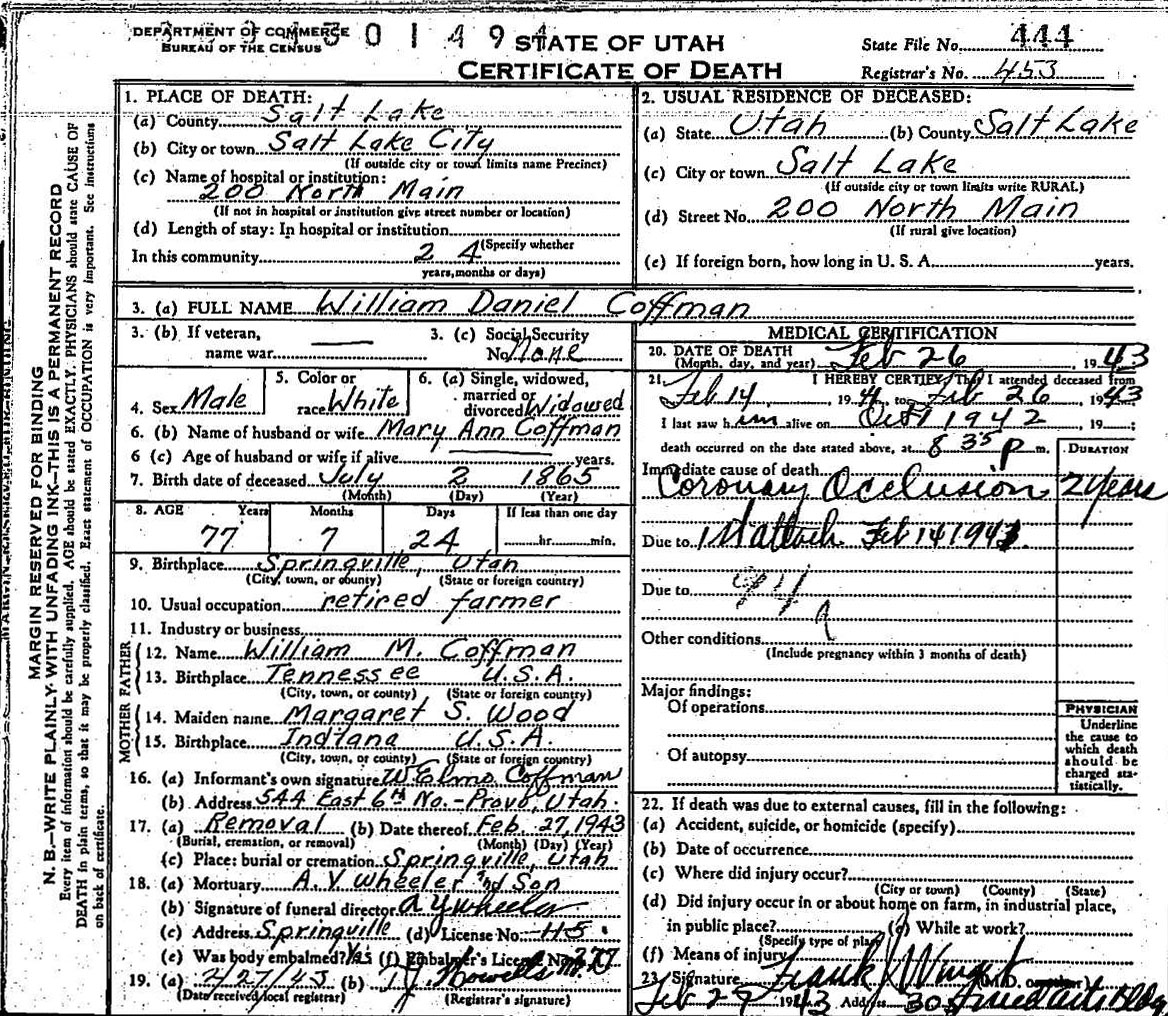 DEPARTMENT OF COMMERCE
BUREAU OF THE CENSUS
STATE OF UTAH
CERTIFICATE OF DEATH
State File No. 444
Registrar's No. 453
MARGIN RESERVED FOR BINDING
N. B.—WRITE PLAINLY WITH UNFADING INK—THIS IS A PERMANENT RECORD
Every item of information should be carefully supplied. AGE should be stated EXACTLY. PHYSICIANS should state CAUSE OF
DEATH in plain terms, so that it may be properly classified. Exact statement of OCCUPATION is very important. See instructions
on back of certificate.
1. PLACE OF DEATH:
(a) County Salt Lake
(b) City or town Salt Lake City
(If outside city or town limits name Precinct)
(c) Name of hospital or institution:
200 North Main
(If not in hospital or institution give street number or location)
(d) Length of stay: In hospital or institution
(Specify whether
In this community 24
years, months or days)
2. USUAL RESIDENCE OF DECEASED:
(a) State Utah (b) County Salt Lake
(c) City or town Salt Lake
(If outside city or town limits write RURAL)
(d) Street No. 200 North Main
(If rural give location)
(e) If foreign born, how long in U. S. A. years.
3. (a) FULL NAME William Daniel Coffman
3. (b) If veteran,
name war
3. (c) Social Security
No. None
4. Sex Male
5. Color or
race White
6. (a) Single, widowed,
married or
divorced Widowed
6. (b) Name of husband or wife Mary Ann Coffman
6 (c) Age of husband or wife if alive years.
7. Birth date of deceased July 2 1865
(Month) (Day) (Year)
8. AGE Years Months Days If less than one day
77 7 24 hr. min.
9. Birthplace Springville, Utah
(City, town, or county) (State or foreign country)
10. Usual occupation retired farmer
11. Industry or business
FATHER
12. Name William M. Coffman
13. Birthplace Tennessee U.S.A.
(City, town, or county) (State or foreign country)
MOTHER
14. Maiden name Margaret S. Wood
15. Birthplace Indiana U.S.A.
(City, town, or county) (State or foreign country)
16. (a) Informant's own signature W Elmo Coffman
(b) Address 544 East 6th No. - Provo, Utah.
17. (a) Removal (b) Date thereof Feb 27, 1943
(Burial, cremation, or removal) (Month) (Day) (Year)
(c) Place: burial or cremation Springville, Utah
18. (a) Mortuary A. Y Wheeler and Son
(b) Signature of funeral director A Y Wheeler
(c) Address Springville (d) License No. 115
(e) Was body embalmed? Yes (f) Embalmer's License No. 277
19. (a) 2/27/43 (b) Howells
(Date received local registrar) (Registrar's signature)
MEDICAL CERTIFICATION
20. DATE OF DEATH
(Month, day, and year) Feb 26, 1943
21. I HEREBY CERTIFY, That I attended deceased from
Feb 14, 1941 to Feb 26, 1943
I last saw him alive on Oct 1 1942, 19 ;
death occurred on the date stated above, at 8 35 P m.
DURATION
Immediate cause of death
Coronary Occlusion 2 years
Due to 1st attack Feb 14 1941
Due to 94
Other conditions
(Include pregnancy within 3 months of death)
Major findings:
Of operations
Of autopsy
PHYSICIAN
Underline
the cause to
which death
should be
charged sta-
tistically.
22. If death was due to external causes, fill in the following:
(a) Accident, suicide, or homicide (specify)
(b) Date of occurrence
(c) Where did injury occur?
(City or town) (County) (State)
(d) Did injury occur in or about home on farm, in industrial place,
in public place? (e) While at work?
(Specify type of place)
(f) Means of injury
23. Signature Frank J Winget (M.D. or other)
Feb 27 1943 Address 30 Bldg